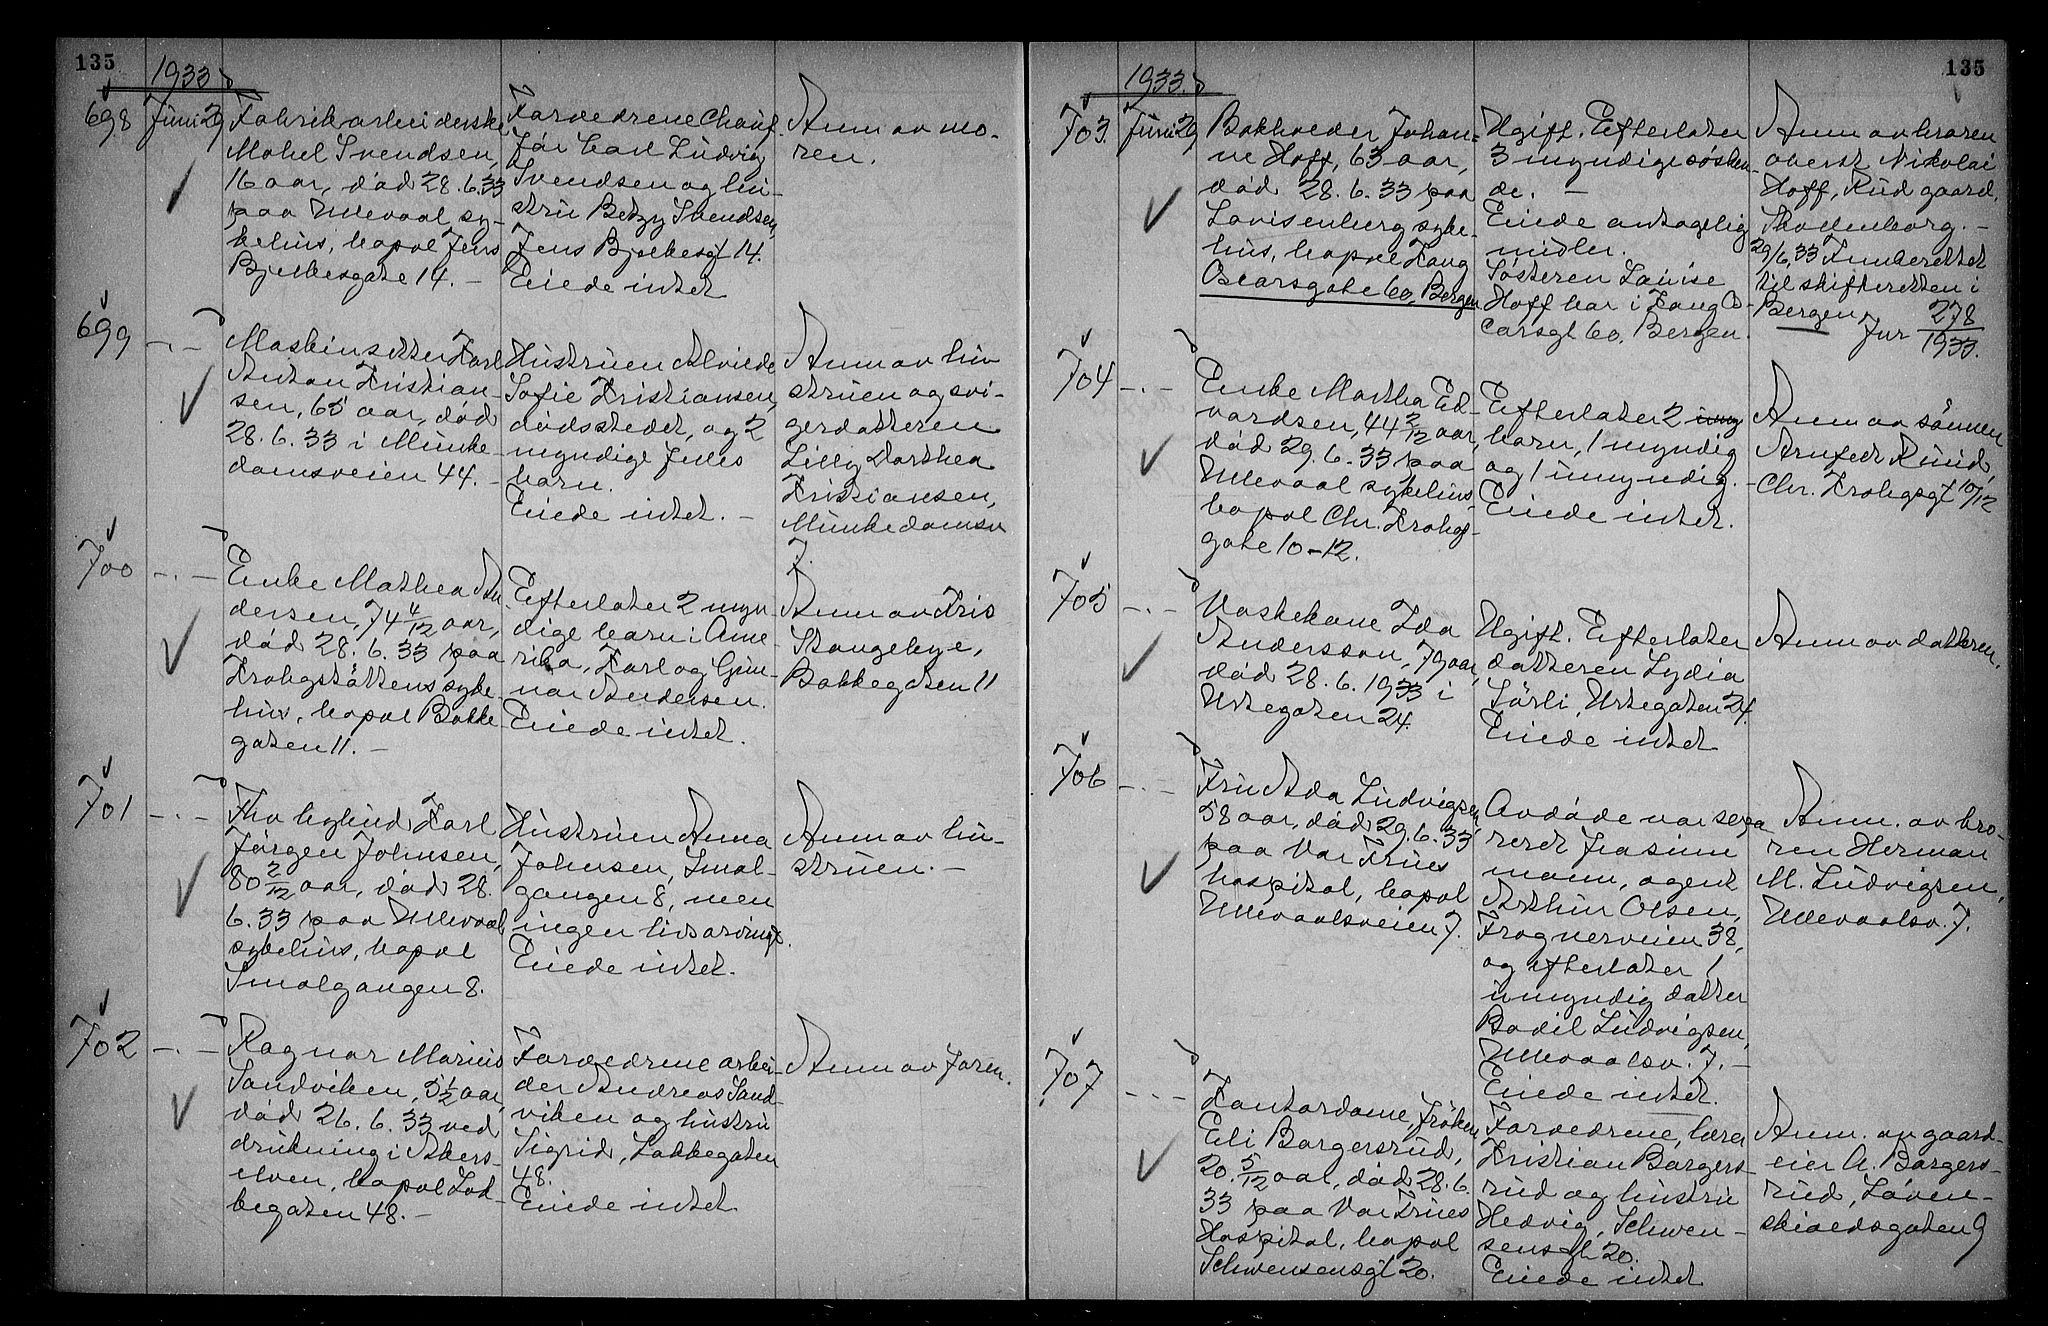 135
1933
698
Juni 29
Fabrikarbeiderske
Mabel Svendsen,
16 aar, død 28.6.33
paa Ullevaal sy-
kehus, bopæl Jens
Bjelkesgate 14. -
Forældrene Chauf-
før Carl Ludvig
Svendsen og hu-
stru Betzy Svendsen,
Jens Bjelkesgt 14.
Eiede intet
Anm av mo-
ren.
699
-.-
Maskinsetter Karl
Anton Kristian-
sen, 65 aar, død
28.6.33 i Munke-
damsveien 44. -
Hustruen Alvilde
Sofie Kristiansen,
dødsstedet, og 2
myndige felles
barn.
Eiede intet. -
Anm av hu
struen og svi-
gerdatteren
Lilly Dorthea
Kristiansen,
Munkedamsv
7.
700
-.-
Enke Mathea An-
dersen, 74 4/12 aar,
død 28.6.33 paa
Krohgstøttens syke-
hus, bopæl Bakke
gaten 11. -
Efterlater 2 myn-
dige barn i Ame
rika, Karl og Gun-
nar Andersen.
Eiede intet.
Anm av Kris
Stangebye,
Bakkegaten 11
701
-.-
Fhv bybud Karl
Jørgen Johnsen,
80 2/12 aar, død 28.
6.33 paa Ullevaal
sykehus, bopæl
Smalgangen 8.
Hustruen Anna
Johnsen, Smal-
gangen 8, men
ingen livsarving.
Eiede intet.
Anm av hu-
struen. -
702
-.-
Ragnar Marius
Sandviken, 5 1/2 aar,
død 26.6.33 ved
drukning i Akers-
elven, bopæl Lak-
kegaten 48. -
Forældrene arbei-
der Andreas Sand-
viken og hustru
Sigrid, Lakkegaten
48.
Eiede intet
Anm av faren.
135
1933.
703
Juni 29
Bokholder Johan-
ne Hoff, 63 aar,
død 28.6.33 paa
Lovisenberg syke-
hus, bopæl Kong
Oscarsgate 60, Bergen
Ugift. Efterlater
3 myndige søsken-
de. -
Eiede antagelig
midler.
Søsteren Louise
Hoff bor i Kong Os-
carsgt 60, Bergen.
Anm av broren
oberst Nikolai
Hoff, Rud gaard,
29/6.33
til skifteretten i
Bergen.
Jnr 278/1933.
704
-.-
Enke Martha Ed-
vardsen, 44 2/12 aar,
død 29.6.33 paa
Ullevaal sykehus,
bopæl Chr. Krohgs-
gate 10-12.
Efterlater 2
barn, 1 myndig
og 1 umyndig. -
Eiede intet.
Anm av sønnen
Chr. Krohgsgt 10/12
705
-.-
Vaskekone Ida
Andersson, 79 aar,
død 28.6.1933 i
Urtegaten 24.
Ugift. Efterlater
datteren Lydia
Sørli, Urtegaten 24.
Eiede intet
Anm av datteren.
706
-.-
Fru Ada Ludvigsen,
58 aar, død 29.6.33
paa Vor Frues
hospital, bopæl
Ullevaalsveien 7.
Avdøde var sepa
rert fra sin
mann, agent
Arthur Olsen,
Frognerveien 38,
og efterlater 1
umyndig datter
Bodil Ludvigsen,
Ullevaalsv. 7. -
Eiede intet.
Anm. av bro-
ren Herman
M. Ludvigsen,
Ullevaalsv. 7.
707
-.-
Kontordame, frøken
Eli Borgersrud,
20. 5/12 aar, død 28.6.
33 paa Vor Frues
Hospital, bopæl
Schwensensgt 20.
Forældrene, lærer
Kristian Borgers-
rud og hustru
Hedvig, Schwen-
sensgt 20.
Eiede intet
Anm. av gaard-
eier A. Borgers-
rud, Løven-
skioldsgaten 9